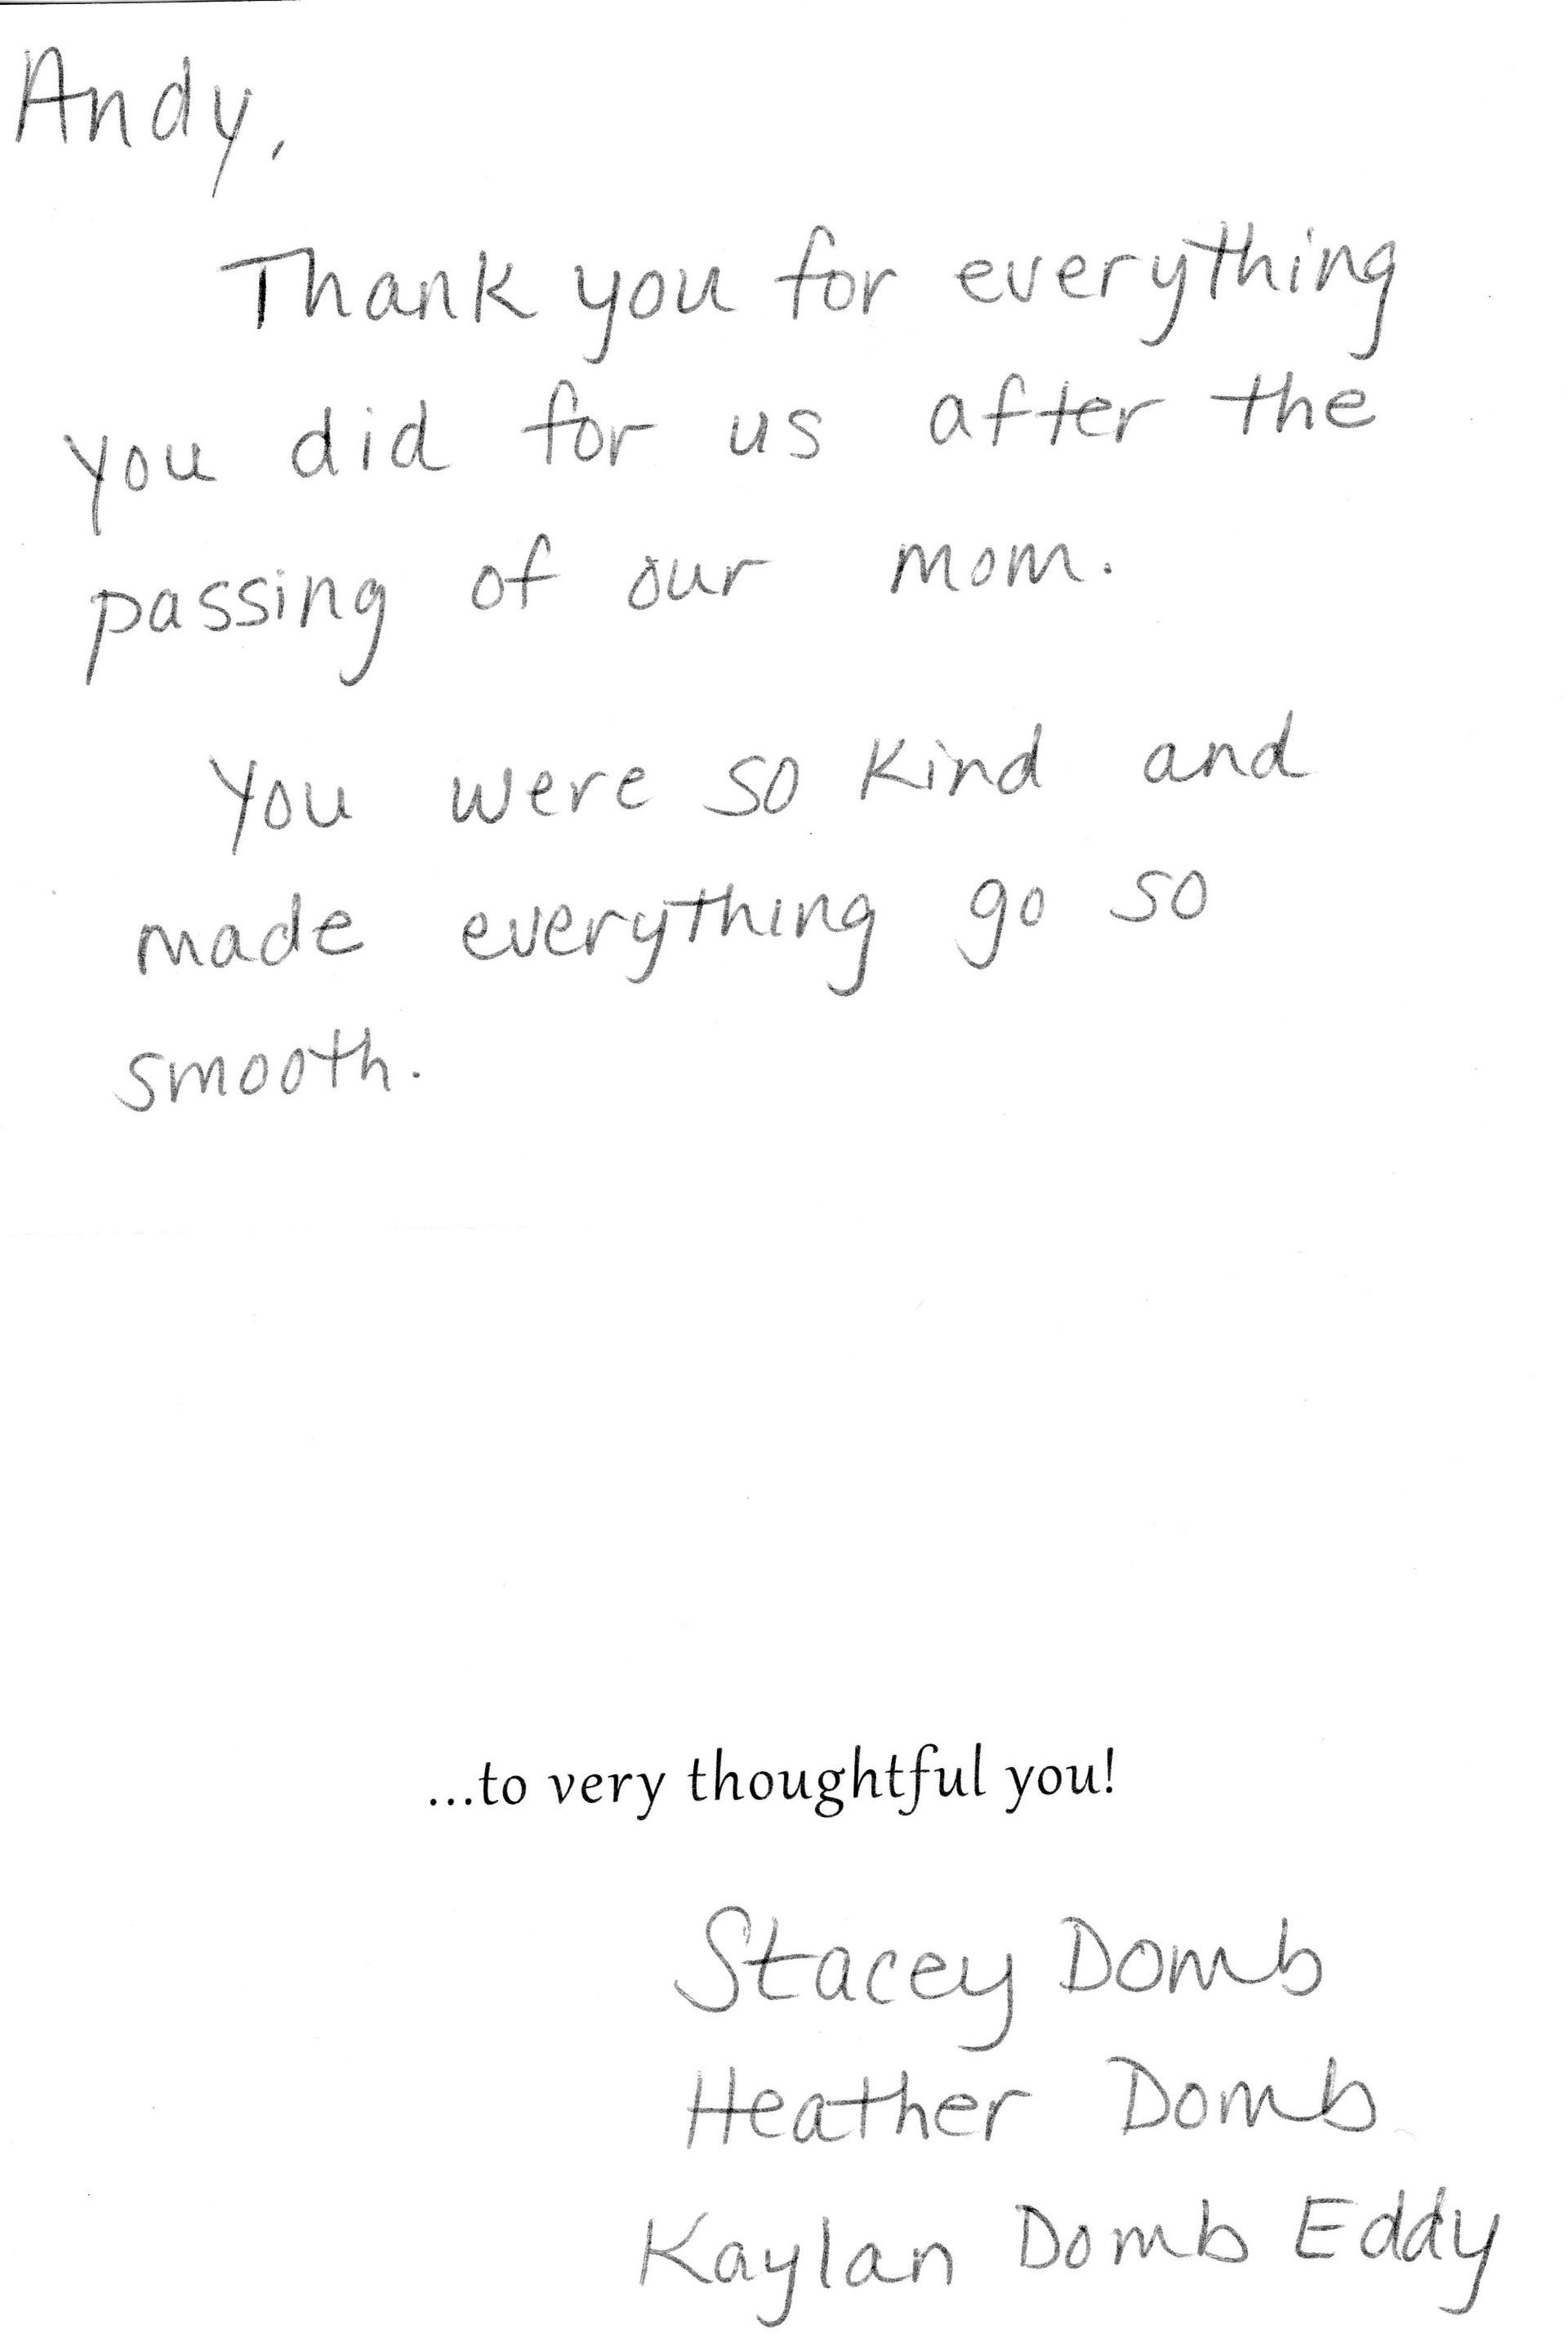 Andy,
Thank you for everything
you did for us after the
passing of our mom.
You were so kind and
made everything go so
smooth.
...to very thoughtful you!
Stacey Domb
Heather Domb
Kaylan Domb Eddy